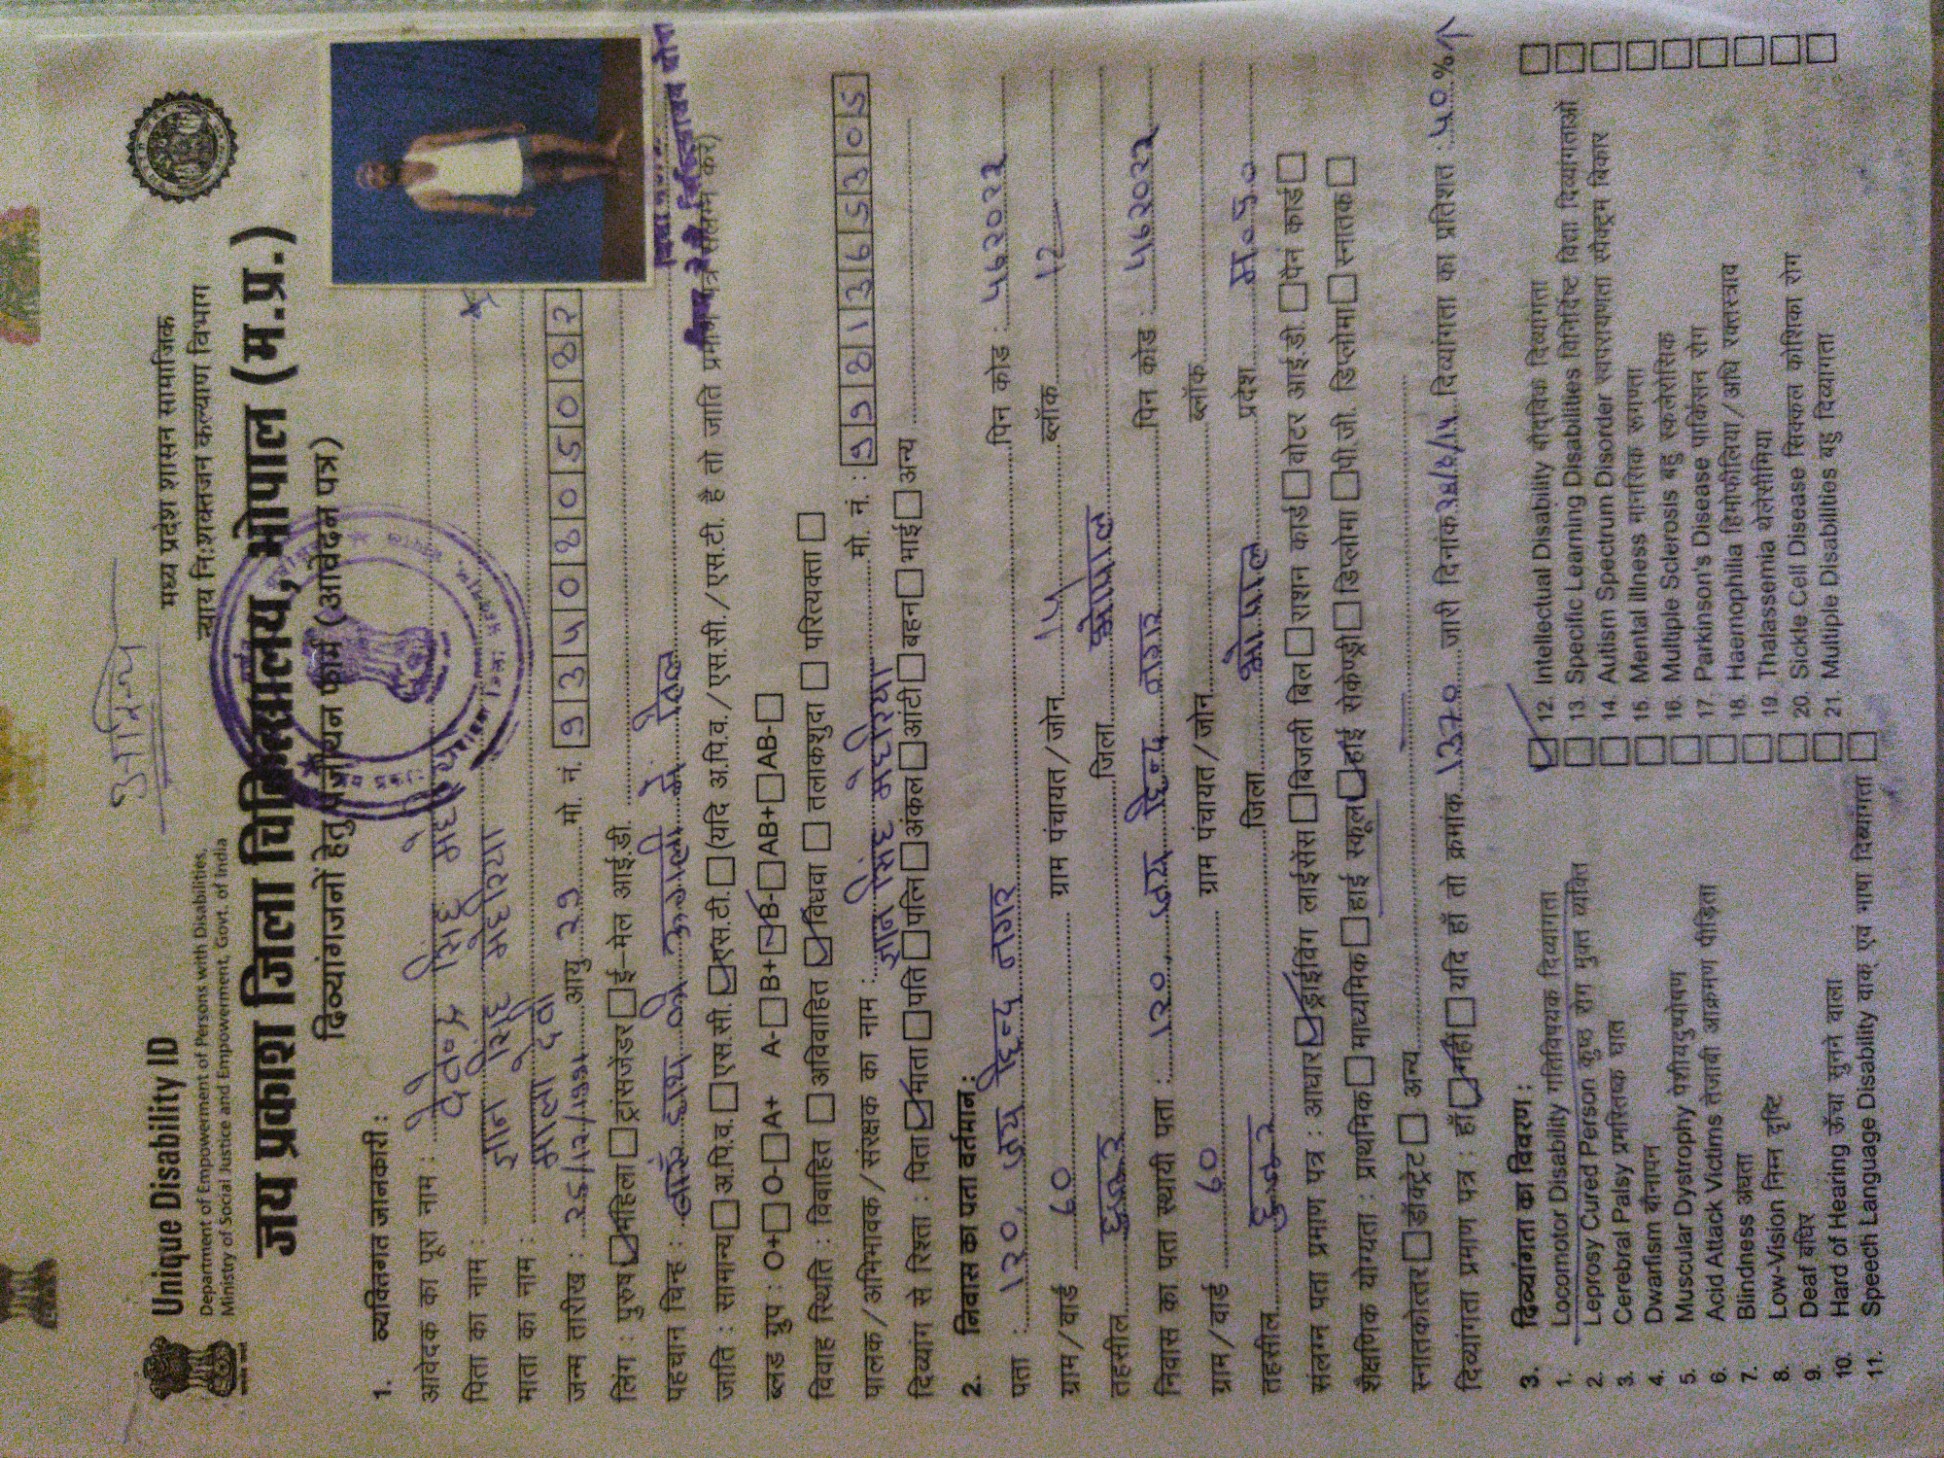 अप्रिन्य
Unique Disability ID
Department of Empowerment of Persons with Disabilities,
Ministry of Social Justice and Empowerment, Govt. of India
मध्य प्रदेश शासन सामाजिक
न्याय निःशक्तजन कल्याण विभाग
जय प्रकाश जिला चिकित्सालय, भोपाल (म.प्र.)
दिव्यांगजनों हेतु पंजीयन फार्म (आवेदन पत्र)
1. व्यक्तिगत जानकारी :
आवेदक का पूरा नाम : देवेन्द्र सिंह भदौरिया
पिता का नाम : ज्ञान सिंह भदौरिया
माता का नाम : माला देवी
जन्म तारीख : २५/१२/१९९१ आयु २९ मो. नं.
लिंग : पुरुष महिला ट्रांसजेंडर ई-मेल आई.डी.
पहचान चिन्ह : बायें हाथ की ऊंगली में तिल
जाति : सामान्य अ.पि.व. एस.सी. एस.टी. (यदि अ.पि.व./एस.सी./एस.टी. है तो जाति प्रमाण पत्र संलग्न करें)
ब्लड ग्रुप : O+ O- A+ A- B+ B- AB+ AB-
विवाह स्थिति : विवाहित अविवाहित विधवा तलाकशुदा परित्यक्ता
पालक/अभिभावक/संरक्षक का नाम : ज्ञान सिंह भदौरिया मो. नं. :
दिव्यांग से रिश्ता : पिता माता पति पत्नि अंकल आंटी बहन भाई अन्य
2. निवास का पता वर्तमान :
पता : १२०, जय हिन्द नगर पिन कोड : ४६२०२२
ग्राम/वार्ड ६० ग्राम पंचायत/जोन १५ ब्लॉक १२
तहसील हुजूर जिला भोपाल
निवास का पता स्थायी पता : १२०, जय हिन्द नगर पिन कोड : ४६२०२२
ग्राम/वार्ड ६० ग्राम पंचायत/जोन ब्लॉक
तहसील हुजूर जिला भोपाल प्रदेश म०प्र०
संलग्न पता प्रमाण पत्र : आधार ड्राईविंग लाईसेंस बिजली बिल राशन कार्ड वोटर आई.डी. पैन कार्ड
शैक्षणिक योग्यता : प्राथमिक माध्यमिक हाई स्कूल हाई सेकेण्ड्री डिप्लोमा पी.जी. डिप्लोमा स्नातक
स्नातकोत्तर डॉक्ट्रेट अन्य
दिव्यांगता प्रमाण पत्र : हाँ नहीं यदि हाँ तो क्रमांक 1370 जारी दिनांक दिव्यांगता का प्रतिशत : ५०%
3. दिव्यांगता का विवरण :
1. Locomotor Disability गतिविषयक दिव्यांगता
2. Leprosy Cured Person कुष्ठ रोग मुक्त व्यक्ति
3. Cerebral Palsy प्रमस्तिष्क घात
4. Dwarfism बौनापन
5. Muscular Dystrophy पेशीयदुष्पोषण
6. Acid Attack Victims तेजाबी आक्रमण पीड़िता
7. Blindness अंधता
8. Low-Vision निम्न दृष्टि
9. Deaf बधिर
10. Hard of Hearing ऊँचा सुनने वाला
11. Speech Language Disability वाक् एवं भाषा दिव्यांगता
12. Intellectual Disability बौद्विक दिव्यांगता
13. Specific Learning Disabilities विनिर्दिष्ट विद्या दिव्यांगताओं
14. Autism Spectrum Disorder स्वपरायणता स्पेक्ट्रम विकार
15. Mental Illness मानसिक रुग्णता
16. Multiple Sclerosis बहु स्कलेरोसिस
17. Parkinson's Disease पार्किंसन रोग
18. Haemophilia हिमोफीलिया/अधि रक्तस्त्राव
19. Thalassemia थेलेसीमिया
20. Sickle Cell Disease सिक्कल कोशिका रोग
21. Multiple Disabilities बहु दिव्यांगता